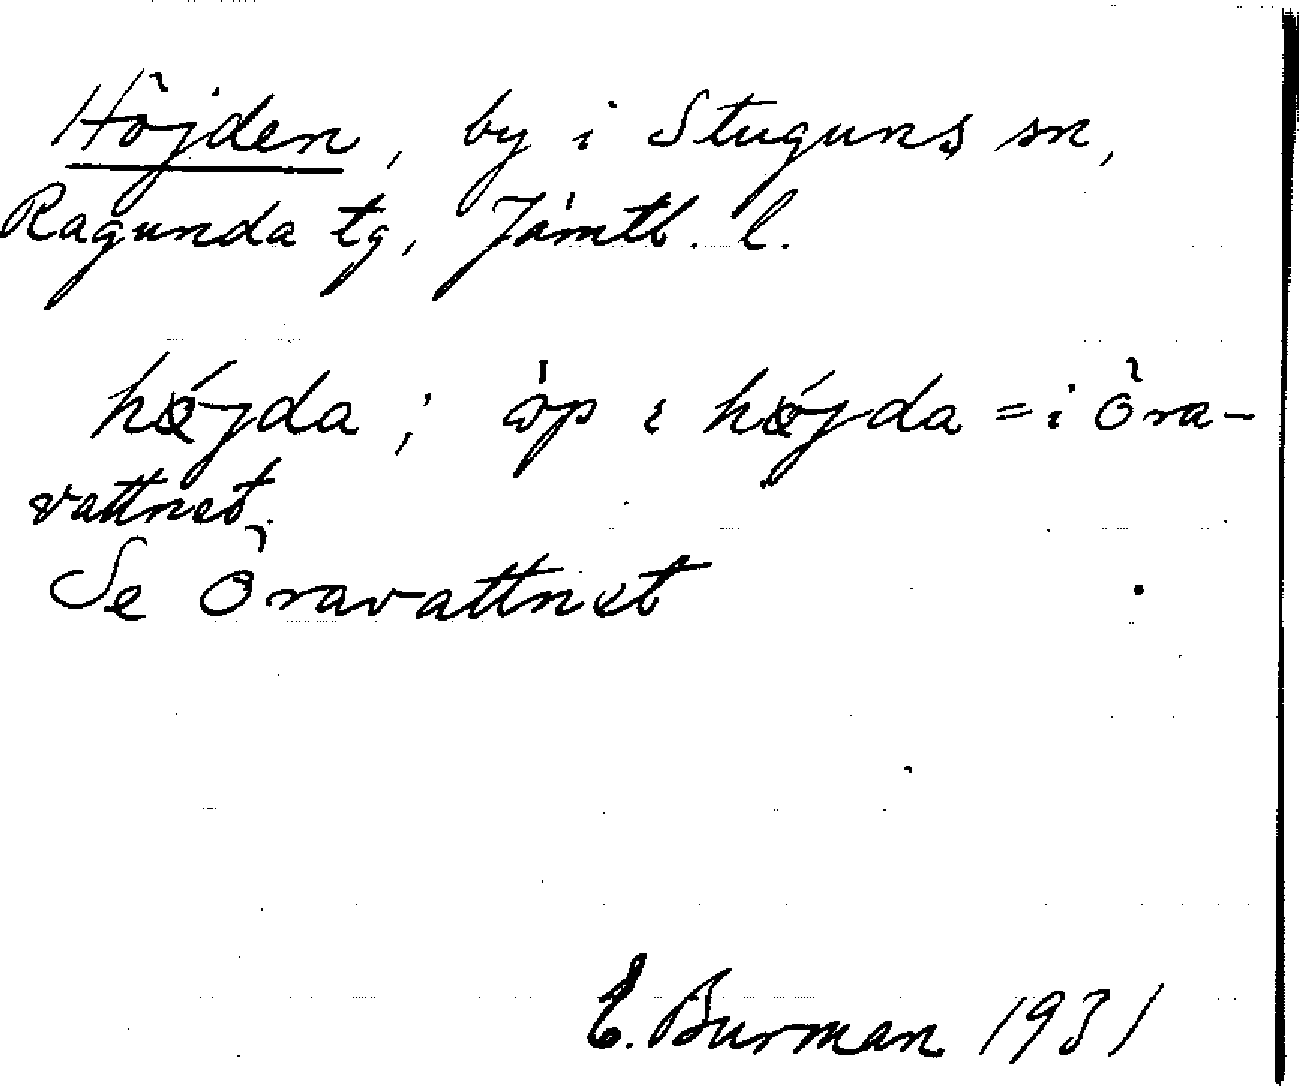 Höjden, by i Stuguns sn,
Ragunda tg, Jämtl. l.
højda; öp i højda = i Öra-
vattnet.
Se Öravattnet
E. Burman 1931